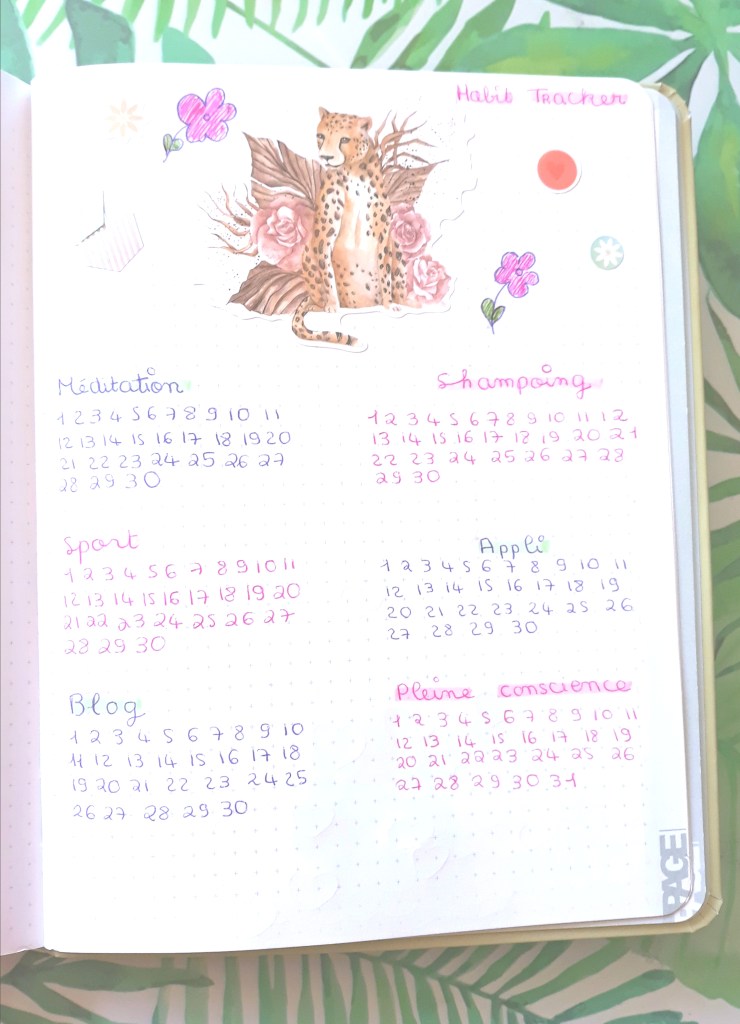 Habit Tracker
Méditation
1 2 3 4 5 6 7 8 9 10 11
12 13 14 15 16 17 18 19 20
21 22 23 24 25 26 27
28 29 30
Shampoing
1 2 3 4 5 6 7 8 9 10 11 12
13 14 15 16 17 18 19 20 21
22 23 24 25 26 27 28
29 30
Sport
1 2 3 4 5 6 7 8 9 10 11
12 13 14 15 16 17 18 19 20
21 22 23 24 25 26 27
28 29 30
Appli
1 2 3 4 5 6 7 8 9 10 11
12 13 14 15 16 17 18 19
20 21 22 23 24 25 26
27 28 29 30
Blog
1 2 3 4 5 6 7 8 9 10
11 12 13 14 15 16 17 18
19 20 21 22 23 24 25
26 27 28 29 30
Pleine conscience
1 2 3 4 5 6 7 8 9 10 11
12 13 14 15 16 17 18 19
20 21 22 23 24 25 26
27 28 29 30 31
PAGE